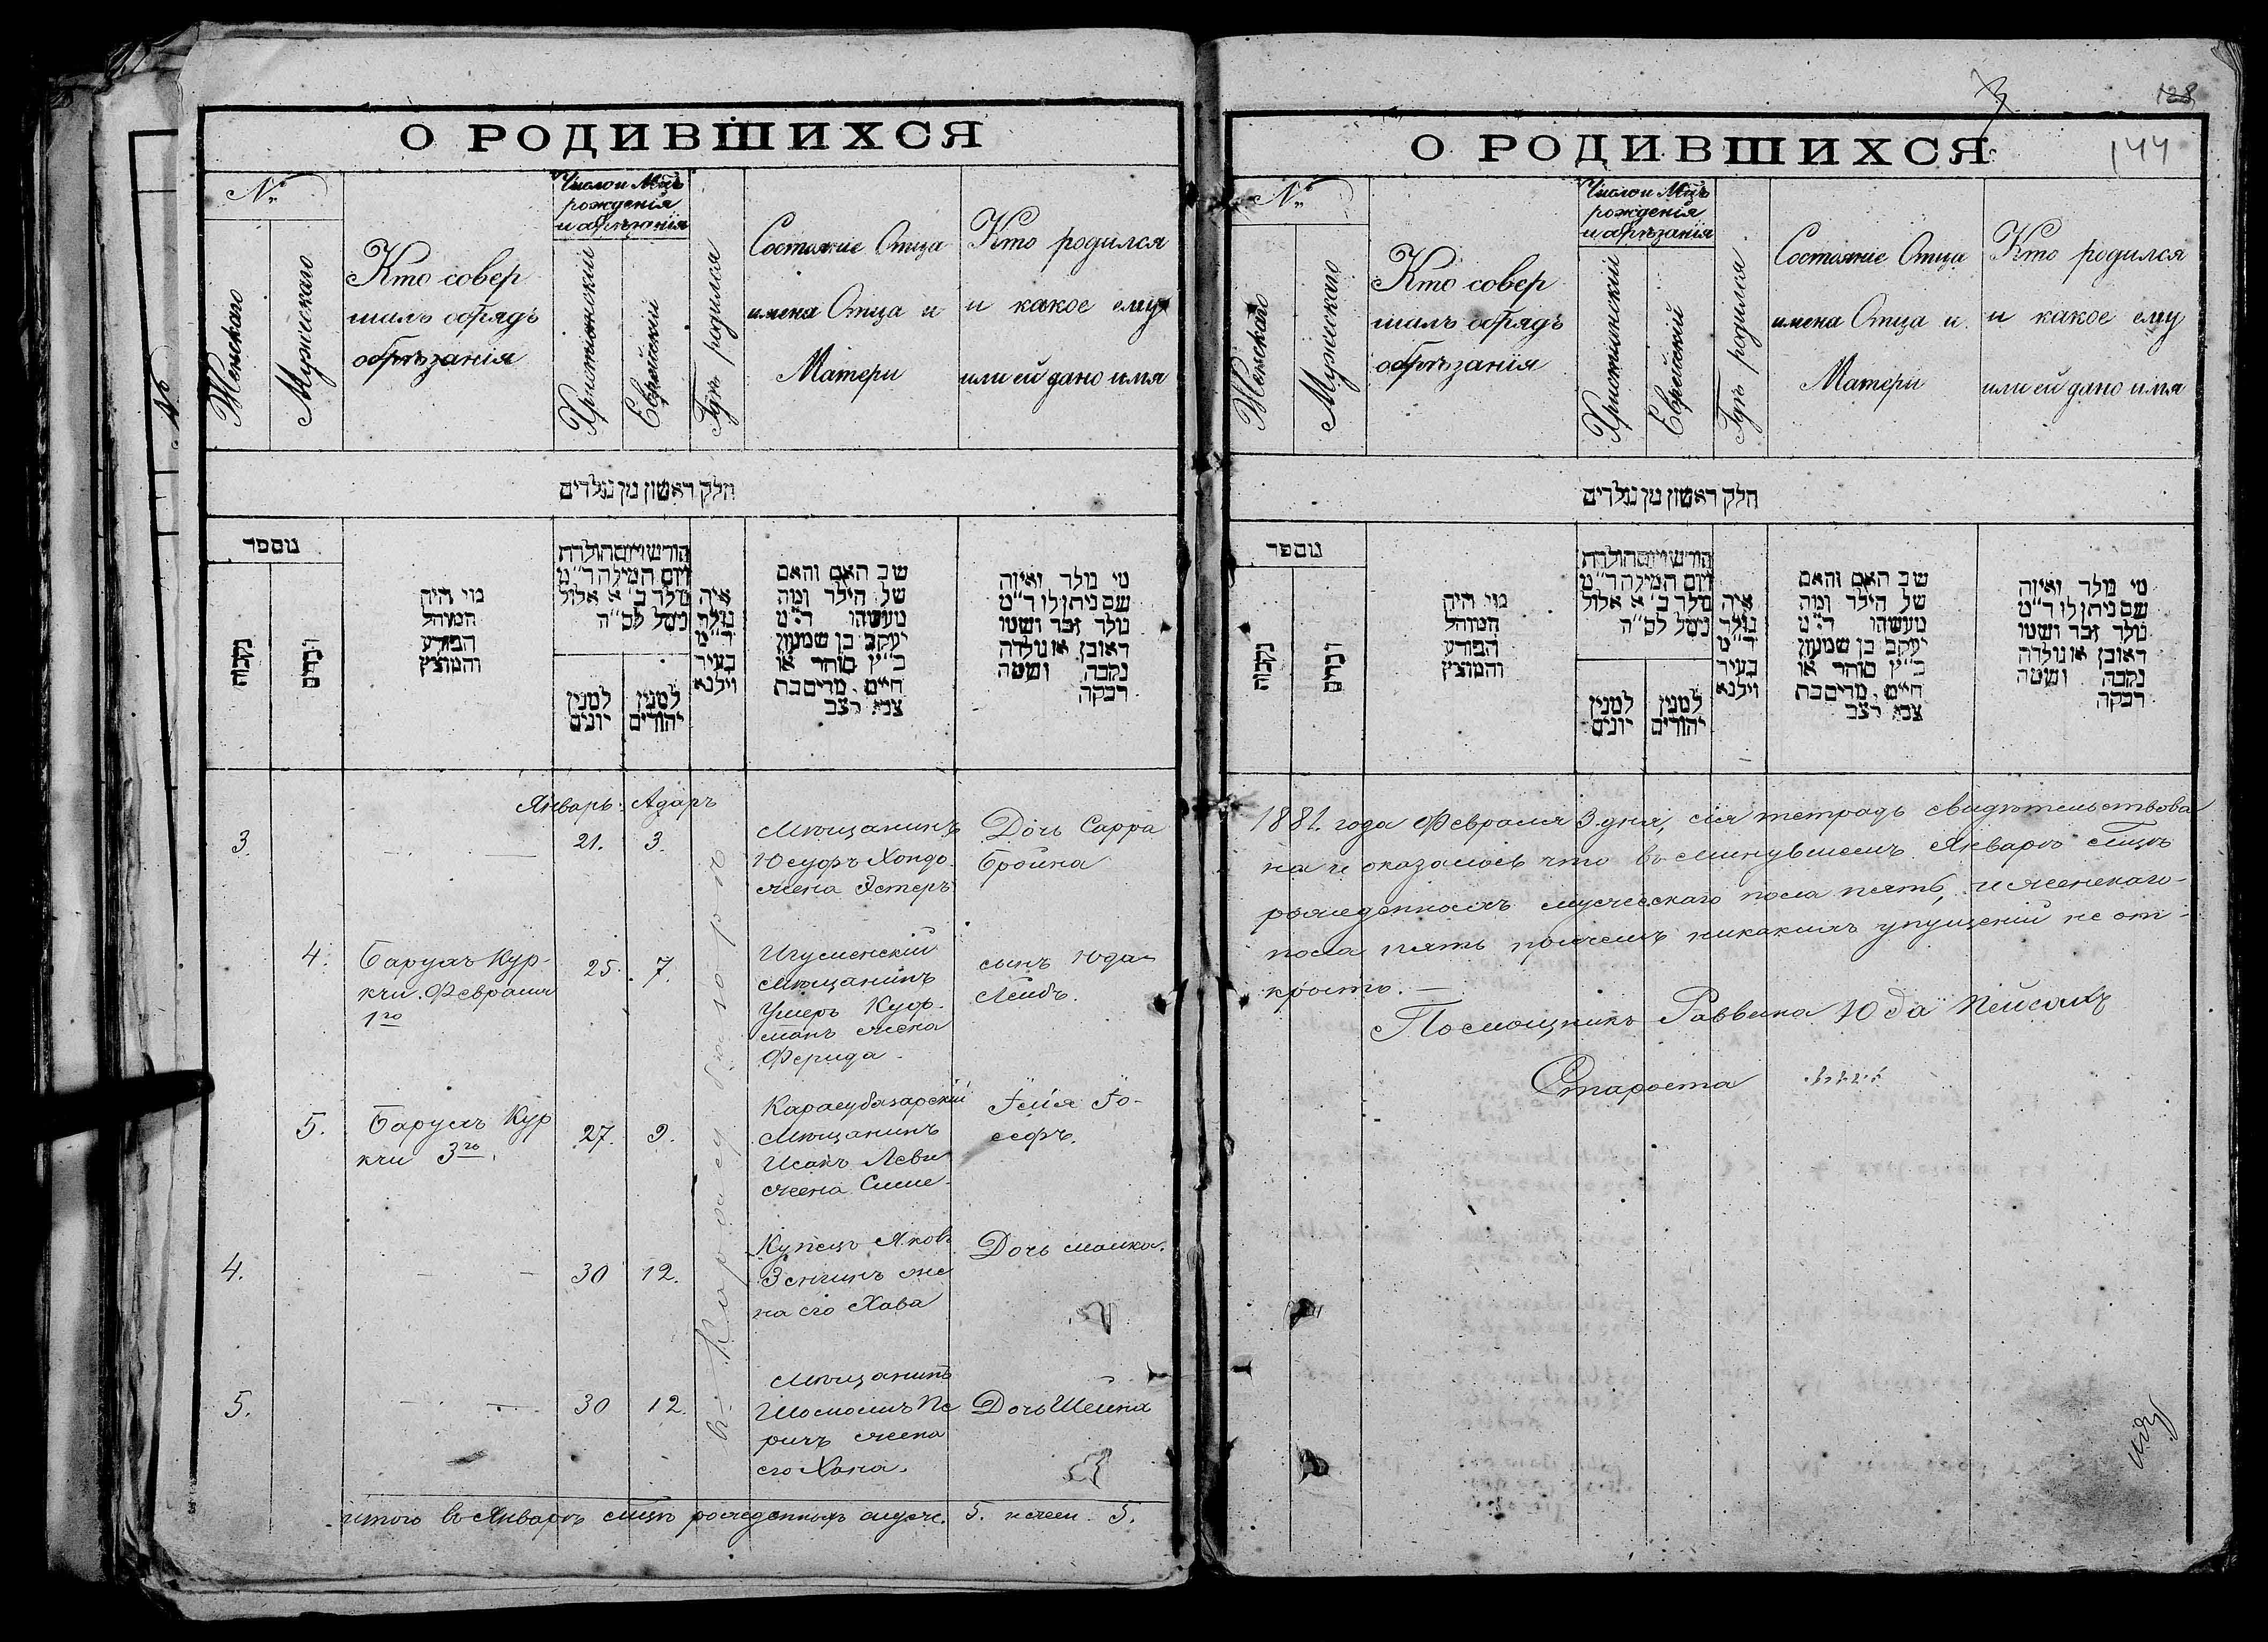 О РОДИВШИХСЯ
№
Женскаго
Мужескаго
Кто совер
шалъ обрядъ
обрѣзанія
Число и Мцъ
рожденія
и обрѣзанія
Христіянскій
Еврейскій
Гдѣ родился
Состояніе Отца
имена Отца и
Матери
Кто родился
и какое ему
или ей дано имя
חלק ראשון מן נולדים
מספר
נקבות
זכרים
מי היה
המוהל
הפורע
והמוצץ
חודש ויום הולדת
ויום המילה ד"מ
נולד ב' א אלול
נימל לס"ה
למנין
יונים
למנין
יהודים
איה
נולד
ד"מ
בעיר
וילנא
שם האם והאם
של הילד ומה
מעשהו ד"מ
יעקב בן שמעון
כ"ץ סוחר או
חיים. מרים בת
צבי רצב
מי נולד ואיזה
שם ניתן לו ד"מ
נולד זכר ושמו
ראובן או נולדה
נקבה ושמה
רבקה
Январь. Адаръ
3. — — 21. 3.
Мѣщанинъ
Юсуфъ Хондо
жена Эстеръ
Дочь Сарра
Бройна
4. Барухъ Кур-
кчи. Февраля
1го
25. 7.
Игуменскій
Мѣщанинъ
Ушеръ Куф-
манъ жена
Фериде
сынъ Юда-
Лейбъ.
5. Барухъ Кур
кчи 3го.
27. 9.
Карасубазарскій
Мѣщанинъ
Исакъ Леви
жена Симе
Ілія Іо-
сефъ.
4. — — 30 12.
Купецъ Яковъ
Зенгинъ же
на его Хава
Дочь Малка.
5. — — 30 12.
Мѣщанинъ
Шоломъ Пе
ричъ жена
его Хана.
Дочь Шейна
въ Карасубазарѣ
итого въ Январѣ мцѣ рожденныхъ мужс. 5. и жен 5.
128
144
О РОДИВШИХСЯ
№
Женскаго
Мужескаго
Кто совер
шалъ обрядъ
обрѣзанія
Число и Мцъ
рожденія
и обрѣзанія
Христіянскій
Еврейскій
Гдѣ родился
Состояніе Отца
имена Отца и
Матери
Кто родился
и какое ему
или ей дано имя
חלק ראשון מן נולדים
מספר
נקבות
זכרים
מי היה
המוהל
הפורע
והמוצץ
חודש ויום הולדת
ויום המילה ד"מ
נולד ב' א אלול
נימל לס"ה
למנין
יונים
למנין
יהודים
איה
נולד
ד"מ
בעיר
וילנא
שם האם והאם
של הילד ומה
מעשהו ד"מ
יעקב בן שמעון
כ"ץ סוחר או
חיים. מרים בת
צבי רצב
מי נולד ואיזה
שם ניתן לו ד"מ
נולד זכר ושמו
ראובן או נולדה
נקבה ושמה
רבקה
1881. года Февраля 3 дня, сія тетрадь свидѣтельствова
на и оказалось что въ минувшемъ Январѣ мцѣ
рожденныхъ мужескаго пола пять, и женскаго-
пола пять причемъ никакихъ упущеній не от-
крыто. —
Помощникъ Раввина Юда Пейсахъ
Староста